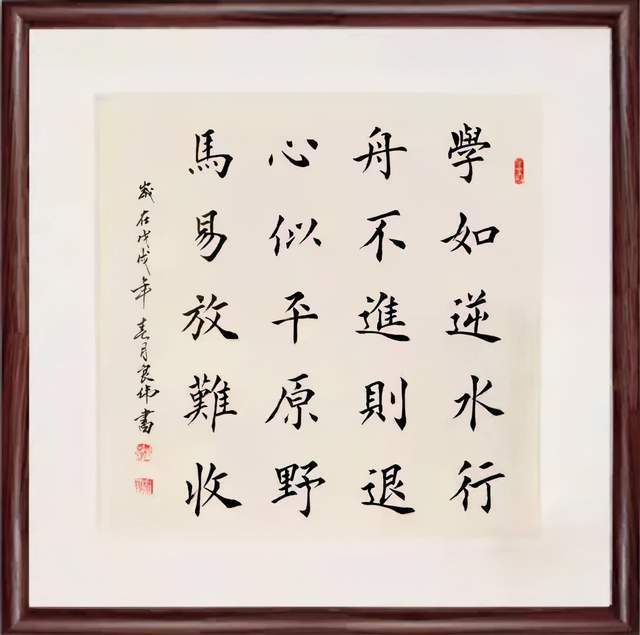 學如逆水行
舟不進則退
心似平原野
馬易放難收
歲在戊戌年春月良偉書